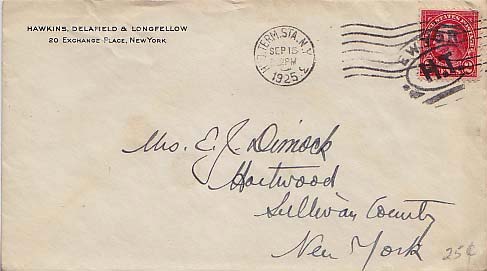 HAWKINS, DELAFIELD & LONGFELLOW
20 EXCHANGE PLACE, NEW YORK
H.D. TERM. STA. N.Y.
SEP 15
PM
1925
3
N.Y.
Mrs. E. J. Dimock
Hartwood
Sullivan County
New York
25¢